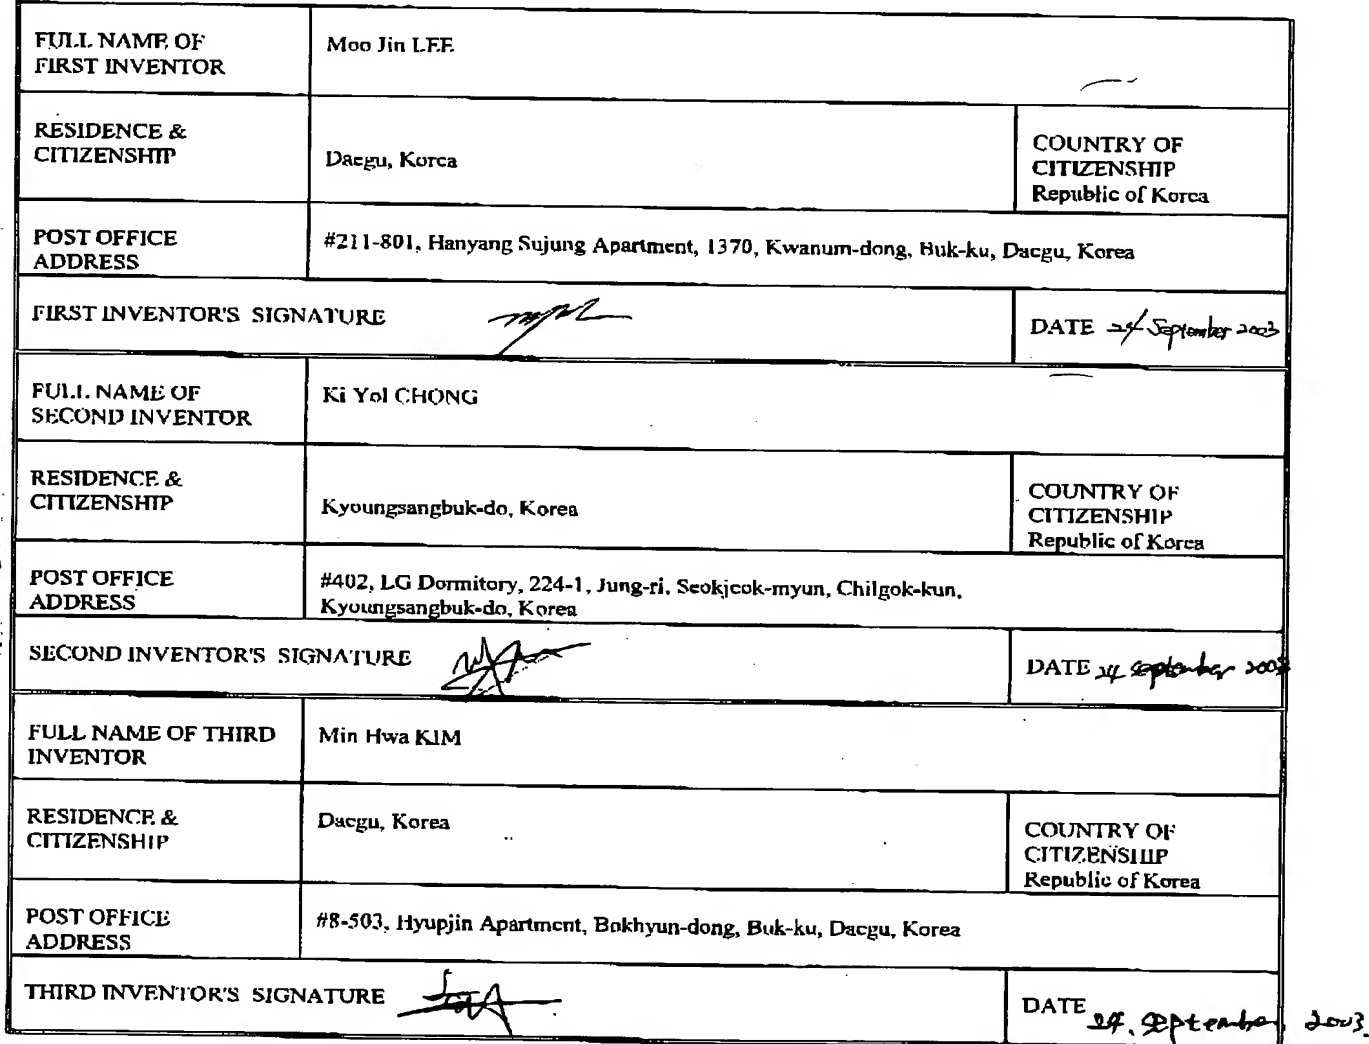 FULL NAME OF
FIRST INVENTOR
Moo Jin LEE
RESIDENCE &
CITIZENSHIP
Daegu, Korea
COUNTRY OF
CITIZENSHIP
Republic of Korea
POST OFFICE
ADDRESS
#211-801, Hanyang Sujung Apartment, 1370, Kwanum-dong, Buk-ku, Daegu, Korea
FIRST INVENTOR'S SIGNATURE
DATE 24 September 2003
FULL NAME OF
SECOND INVENTOR
Ki Yol CHONG
RESIDENCE &
CITIZENSHIP
Kyoungsangbuk-do, Korea
COUNTRY OF
CITIZENSHIP
Republic of Korea
POST OFFICE
ADDRESS
#402, LG Dormitory, 224-1, Jung-ri, Seokjeok-myun, Chilgok-kun,
Kyoungsangbuk-do, Korea
SECOND INVENTOR'S SIGNATURE
DATE 24 September 2003
FULL NAME OF THIRD
INVENTOR
Min Hwa KIM
RESIDENCE &
CITIZENSHIP
Daegu, Korea
COUNTRY OF
CITIZENSHIP
Republic of Korea
POST OFFICE
ADDRESS
#8-503, Hyupjin Apartment, Bokhyun-dong, Buk-ku, Daegu, Korea
THIRD INVENTOR'S SIGNATURE
DATE 24. September 2003.